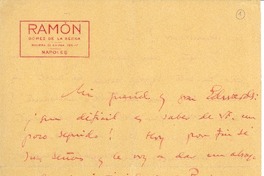 RAMÓN
GOMEZ DE LA SERNA
NAPOLES
Mi querido y gran Eduardo:
¡Qué difícil es saber de Vd. un
poco seguido! Hoy por fin sé
sus señas y le voy a dar un abrazo